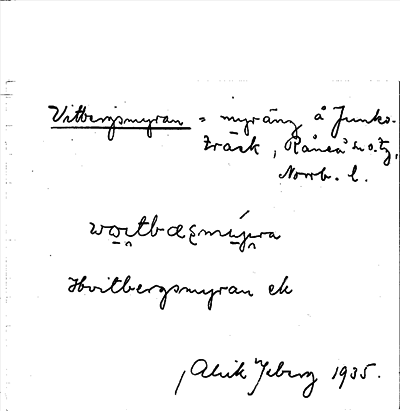 Vitbergsmyran = myräng å Junko-
träsk, Råneå sn o. tg,
Norrb. l.
Hvitbergsmyran ek
Alrik Yberg 1935.